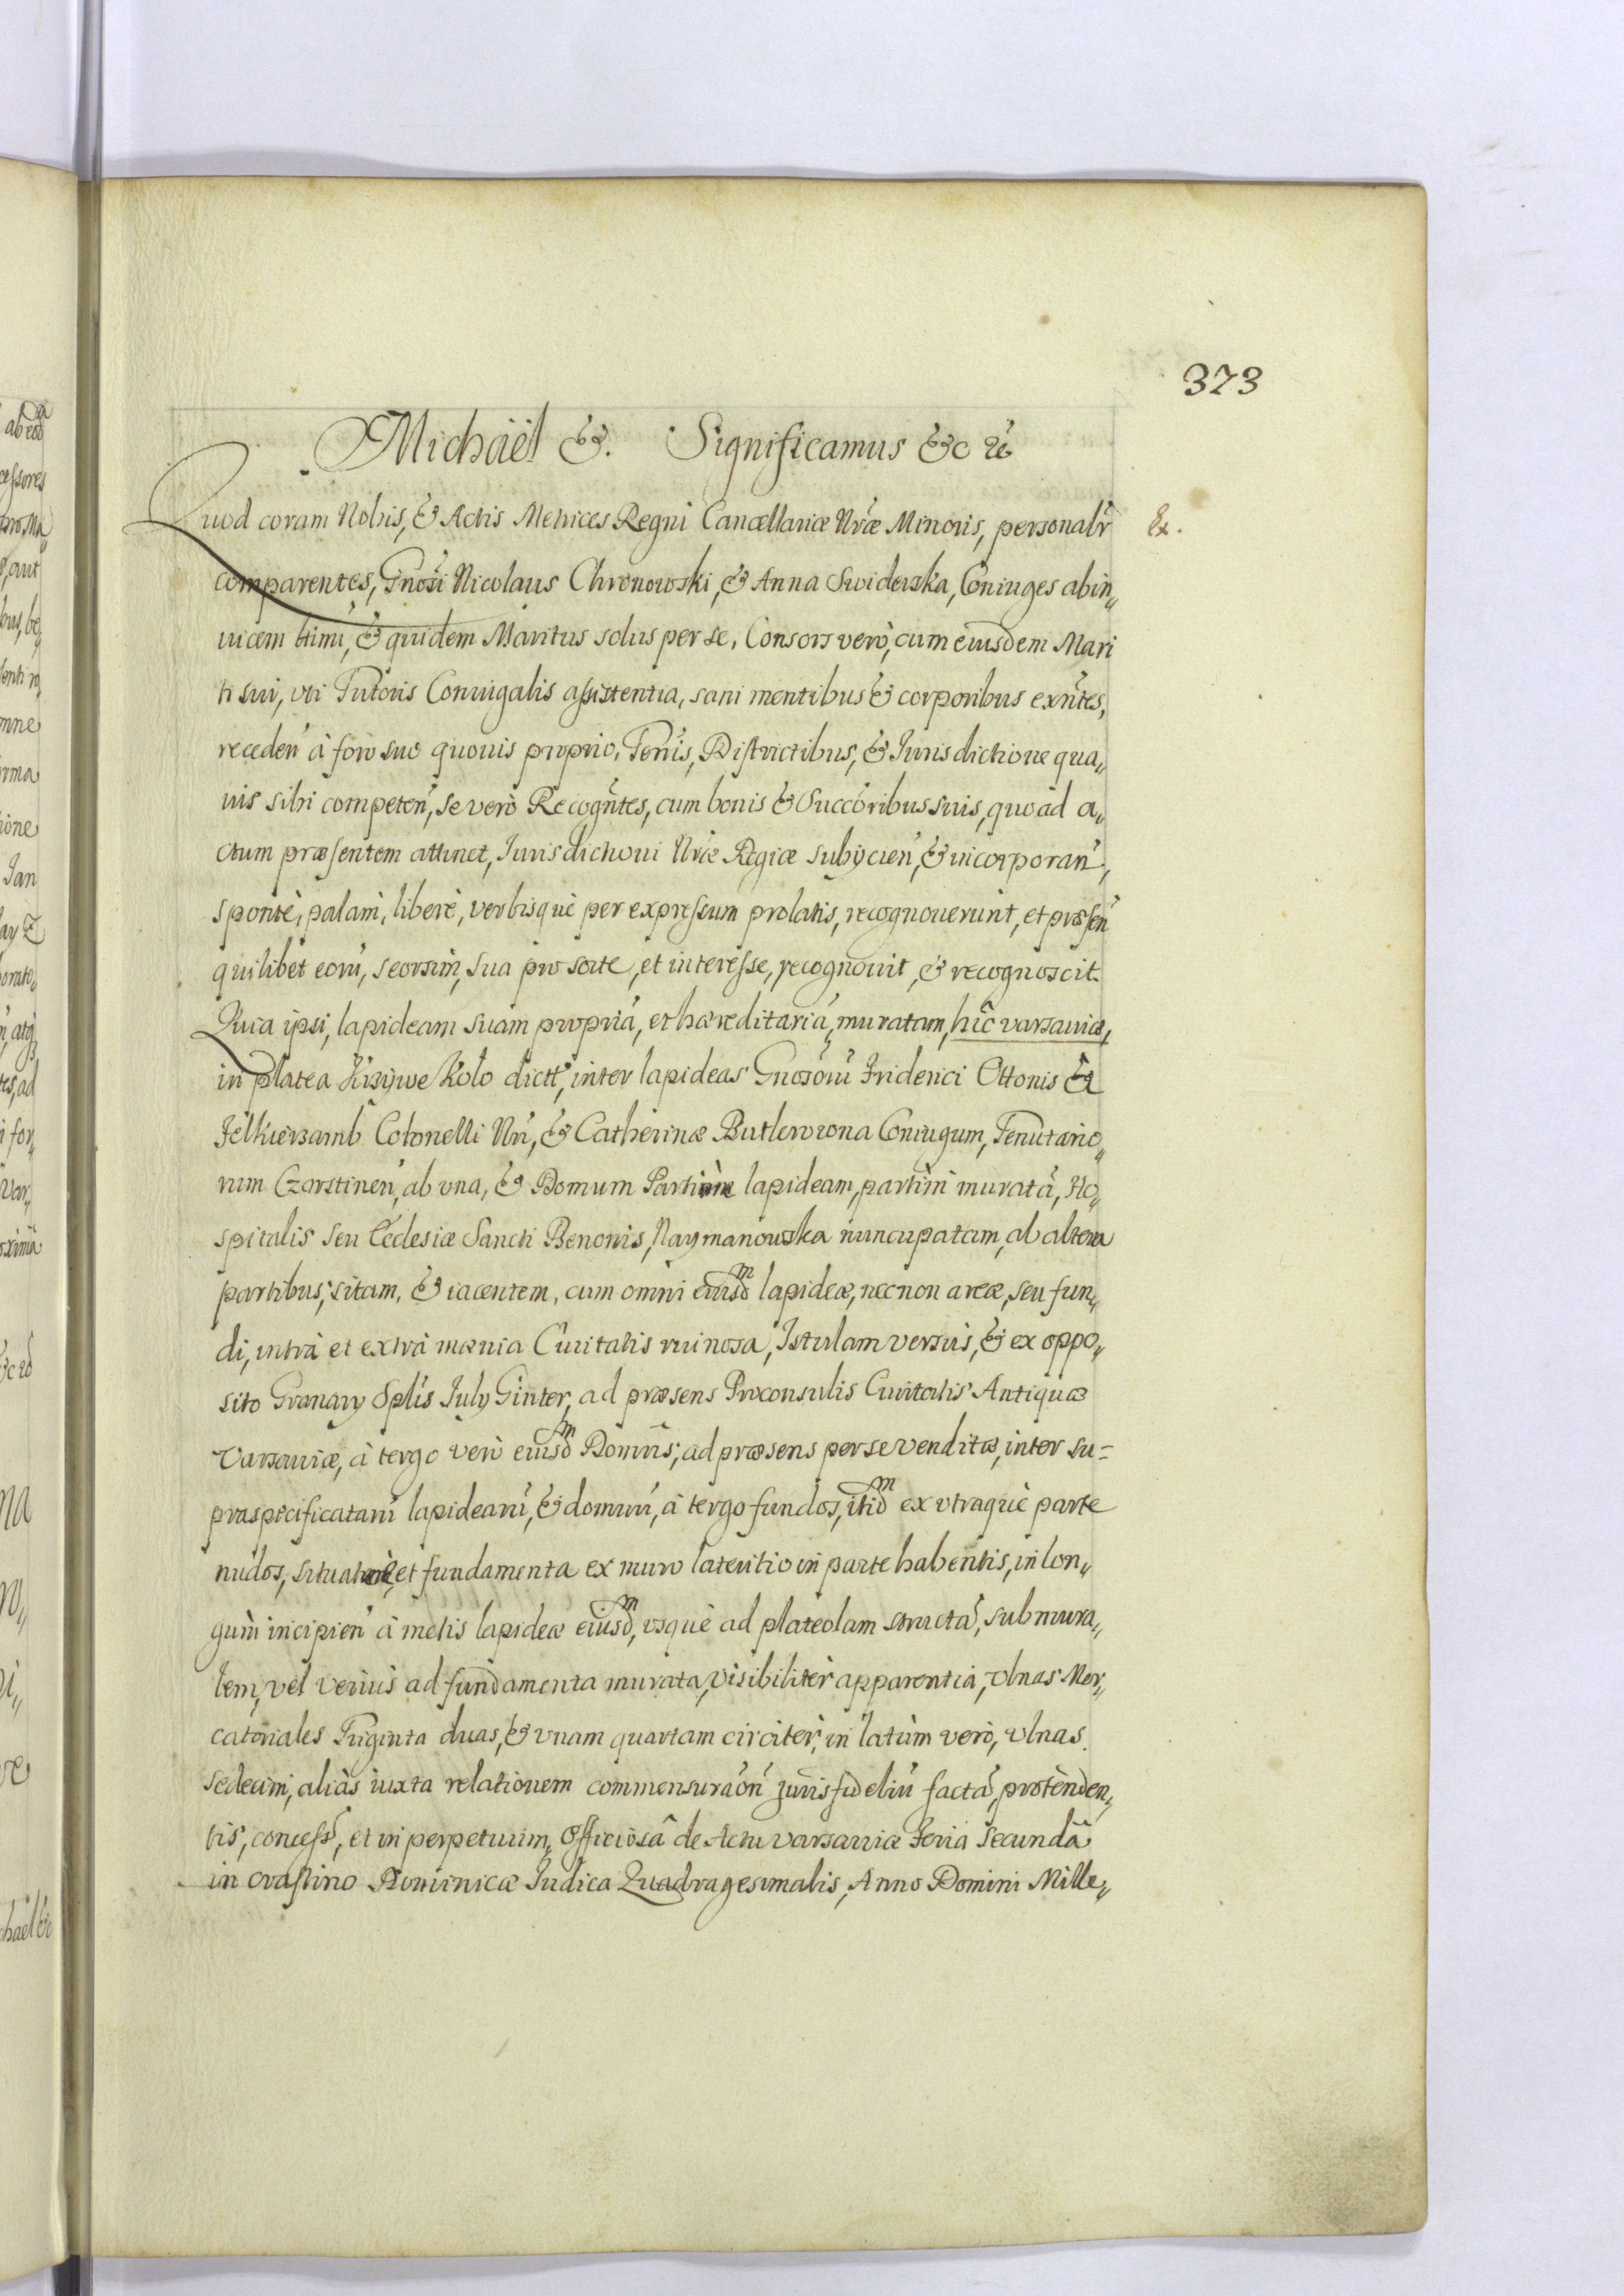 373
Michaël &. Significamus &c &
Quod coram Nobis, & Actis Metrices Regni Cancellariæ Nræ Minoris, personalr̃
Ex.
comparentes, Gnosi Nicolaus Chronowski, & Anna Swiderska, Coniuges abin„
uicem ltimi, & quidem Maritus solus per se, Consors verò, cum eiusdem Mari
ti sui, vti Tutoris Coniugalis assistentia, sani mentibus & corporibus exñtes,
receden̛ à foro suo quouis proprio, Terris, Districtibus, & Iurisdictione qua„
uis sibi competen̛, se verò Recogñtes, cum bonis & Succoribus suis, quoad a„
ctum præsentem attinet, Iurisdictioni Nræ Regiæ subijcien̛, & incorporan̛,
spontè, palam, liberè, verbisquè per expressum prolatis, recognouerunt, et præsen̛
quilibet eorũ, seorsim, sua pro sorte, et interesse, recognouit, & recognoscit.
Quia ipsi, lapideam suam propriã, et hæreditariã, muratam, hîc varsauiæ,
in platea Krzywe Koło dictt, inter lapideas Gnosorũ Friderici Ottonis &
Felkiersamb Colonelli Nri, & Catherinæ Butlerowna Coniugum, Tenutario„
rum Czarstinen̛, ab vna, & Domum Partim lapideam, partim muratã, Ho„
spitalis seu Ecclesiæ Sancti Benonis, Naymanowska nuncupatam, ab altera
partibus, sitam, & iacentem, cum omni eiusdm lapideæ, necnon areæ, seu fun„
di, intrà et extrà mænia Ciuitatis ruinosa, Istulam versùs, & ex oppo„
sito Granary Splis July Ginter, ad præsens Proconsulis Ciuitatis Antiquæ
Varsauiæ, à tergo verò eiusdm Domũs, ad præsens per se venditæ, inter su=
praspecificatam lapideam, & domum, à tergo fundos, itidm ex vtraquè parte
nudos, situatæ, et fundamenta ex muro lateritio in parte habentis, in lon„
gum incipien̛ à metis lapideæ eiusdm, vsquè ad plateolam structã, sub mura„
lem, vel veriùs ad fundamenta murata, visibiliter apparentia, vlnas Mer„
catoriales Triginta duas, & vnam quartam circiter, in latum verò, vlnas
sedecim, aliàs iuxta relationem commensuraon̛ jurisfideliũ factã, protenden„
tis, concess̛, et in perpetuum, Officiosã de Actu varsauiæ Feria Secundã
in crastino Dominicæ Iudica Quadragesimalis, Anno Domini Mille„